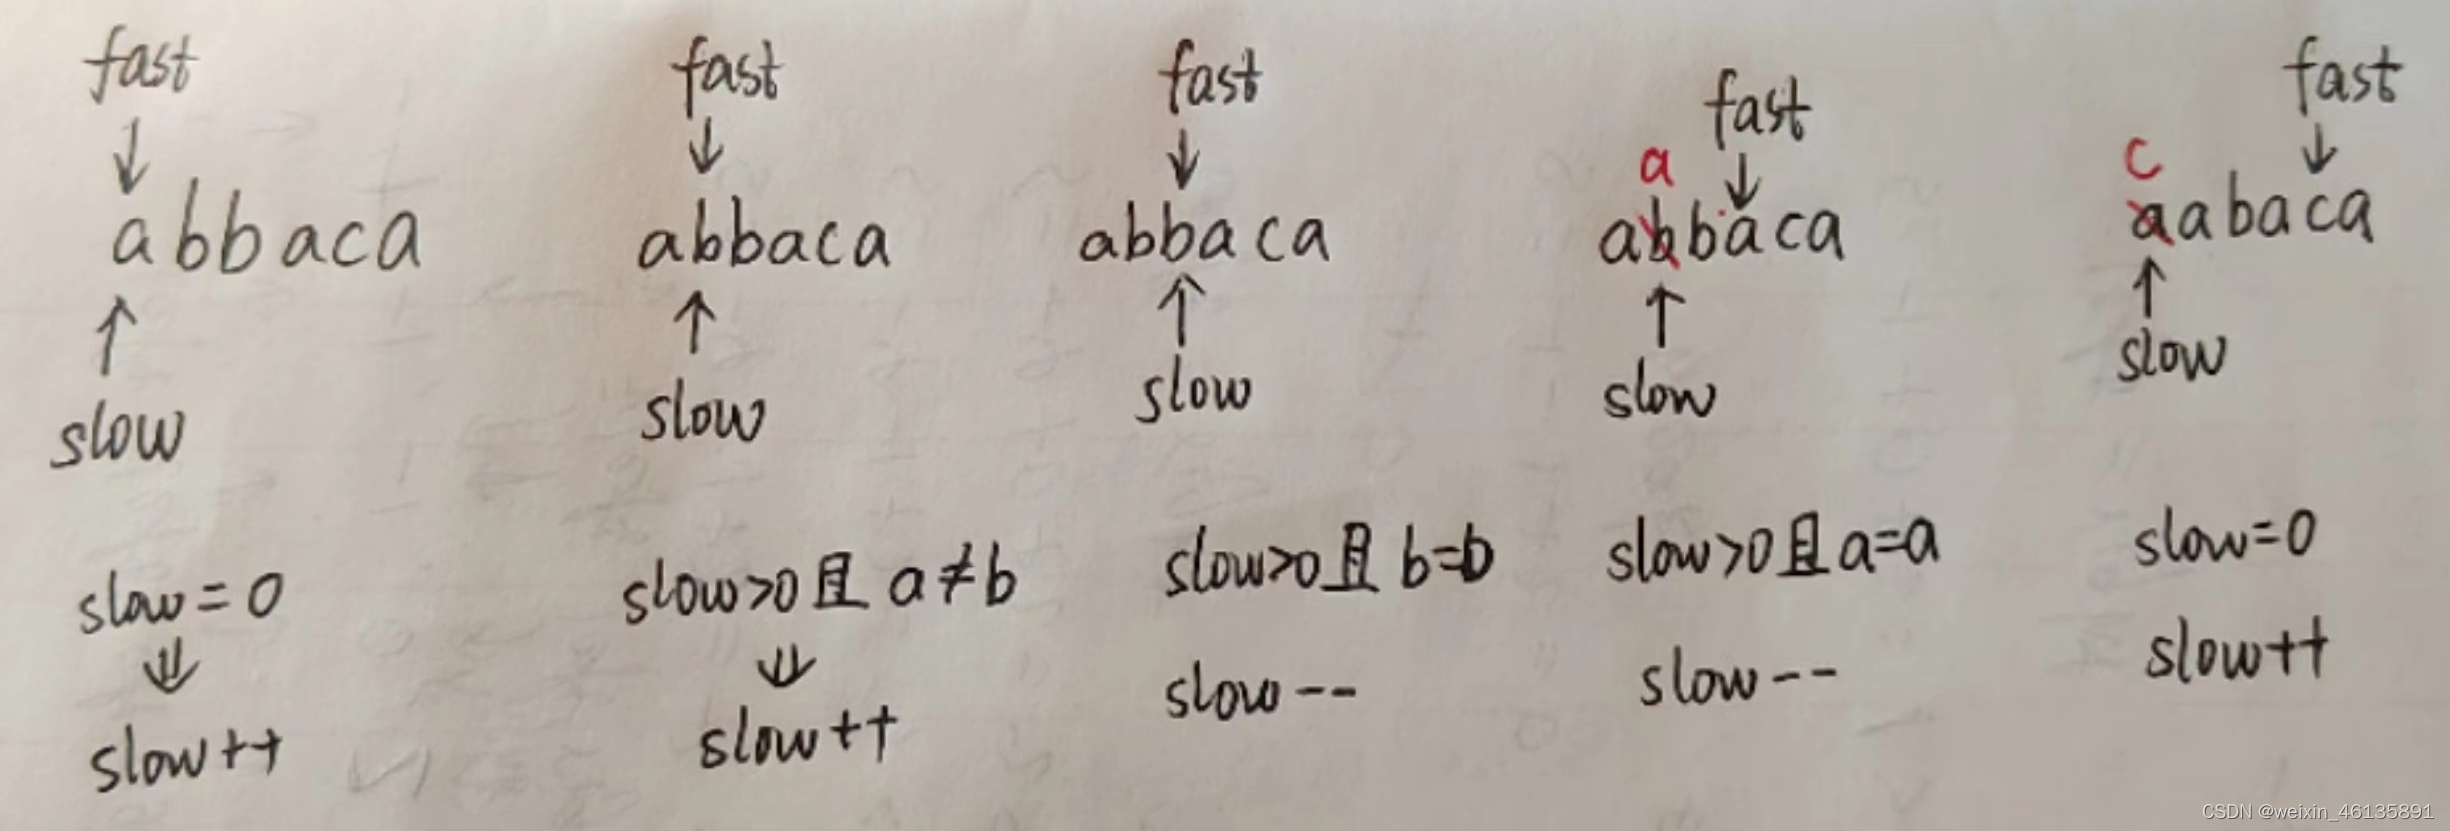 fast
abbaca
slow
slow=0
⇓
slow++
fast
abbaca
slow
slow>0且a≠b
⇓
slow++
fast
abbaca
slow
slow>0且b=b
slow--
fast
a
abbaca
slow
slow>0且a=a
slow--
fast
c
aabaca
slow
slow=0
slow++
CSDN @weixin_46135891